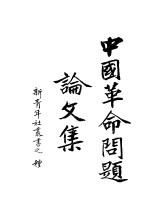 中國革命問題
論文集
新青年社叢書之一種